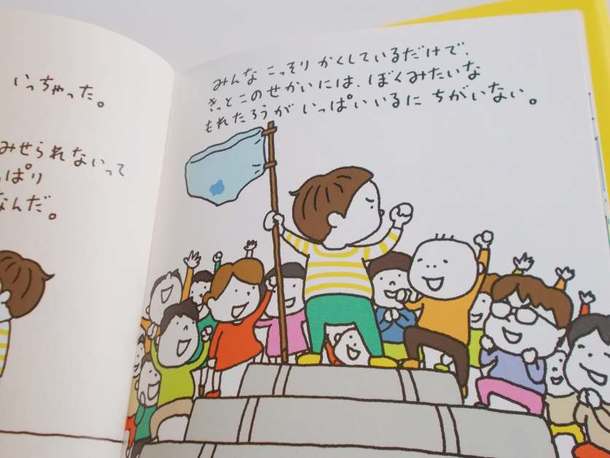 いっちゃった。
みせられないって
っぱり
なんだ。
みんな こっそり かくしているだけで、
きっとこのせかいには、ぼくみたいな
もれたろうが いっぱいいるに ちがいない。